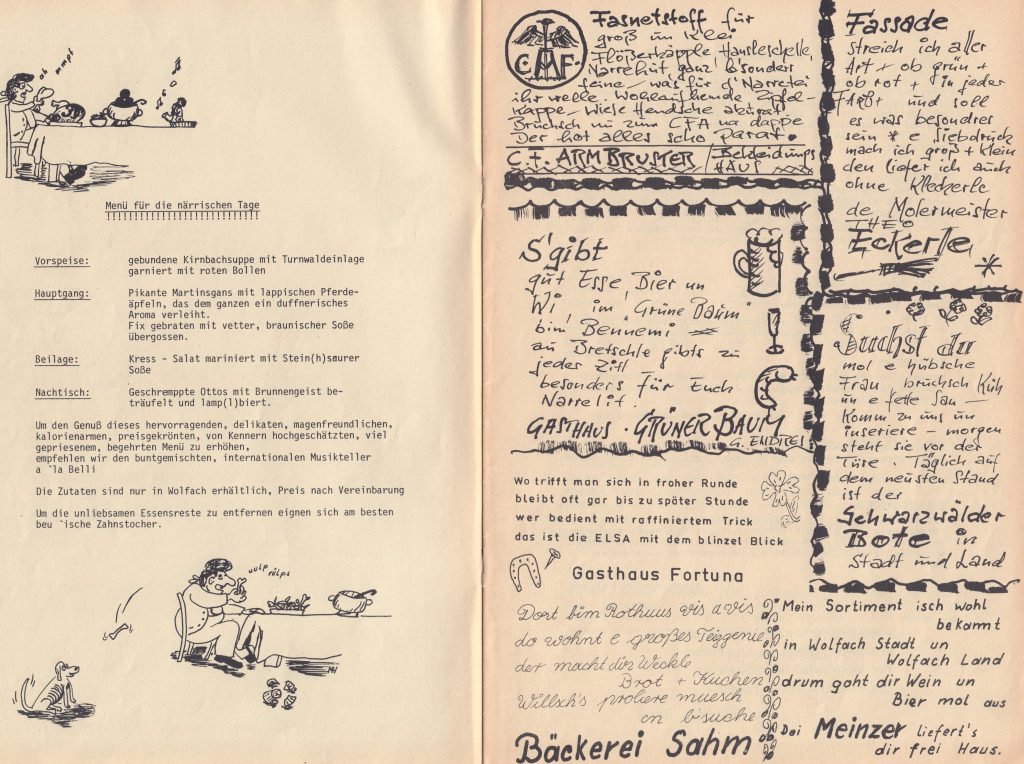 ob mmpf
Menü für die närrischen Tage
!!!!!!!!!!!!!!!!!!!!!!!!!!!!
Vorspeise: gebundene Kirnbachsuppe mit Turnwaldeinlage
garniert mit roten Bollen
Hauptgang: Pikante Martinsgans mit lappischen Pferde-
äpfeln, das dem ganzen ein duffnerisches
Aroma verleiht.
Fix gebraten mit vetter, braunischer Soße
übergossen.
Beilage: Kress - Salat mariniert mit Stein(h)saurer
Soße
Nachtisch: Geschremppte Ottos mit Brunnengeist be-
träufelt und lamp(l)biert.
Um den Genuß dieses hervorragenden, delikaten, magenfreundlichen,
kalorienarmen, preisgekrönten, von Kennern hochgeschätzten, viel
gepriesenem, begehrten Menü zu erhöhen,
empfehlen wir den buntgemischten, internationalen Musikteller
a `la Belli
Die Zutaten sind nur in Wolfach erhältlich, Preis nach Vereinbarung
Um die unliebsamen Essensreste zu entfernen eignen sich am besten
beu `ische Zahnstocher.
uulp
rülps
C.A.F.
Fasnetstoff für
groß un klei
Flößerkäpple, Hansleschelle,
Narrehüt, ganz b'sonder
feine, was für d'Narretei
ihr welle. Wohlaufhemde Zipfel-
kappe - wieße Hendsche
Bruchsch nu zum CFA na dappe
Der hot alles scho Parat.
C.F. ARMBRUSTER / Bekleidungs
HAUS
S'gibt
gut Esse, Bier un
Wi, im "Grüne Baum"
bim Bennemi
au Bretschle gibts zu
jeder Zitt
besonders für Euch
Narrelit.
GASTHAUS · GRÜNER BAUM
Wo trifft man sich in froher Runde
bleibt oft gar bis zu später Stunde
wer bedient mit raffiniertem Trick
das ist die ELSA mit dem blinzel Blick
Gasthaus Fortuna
Dort bim Rothuus vis a vis
do wohnt e großes Teiggenie
der macht dir Weckle
Brot + Kuchen
Willsch's probiere muesch
en b'suche
Bäckerei Sahm
Fassade
streich ich aller
Art + ob grün +
ob rot + in jeder
Farb + und soll
es was besondres
sein * e Siebdruck
mach ich groß + klein
den liefer ich auch
ohne Kleckerle
de Molermeister
THEO
Eckerle
Suchst du
mol e hübsche
Frau bruchsch Küh
un e fette Sau -
Komm zu uns un
inseriere - morgen
steht sie vor der
Türe. Täglich auf
dem neusten Stand
ist der
Schwarzwälder
Bote in
Stadt und Land
Mein Sortiment isch wohl
bekannt
in Wolfach Stadt un
Wolfach Land
drum goht dir Wein un
Bier mol aus
Dei Meinzer liefert's
dir frei Haus.